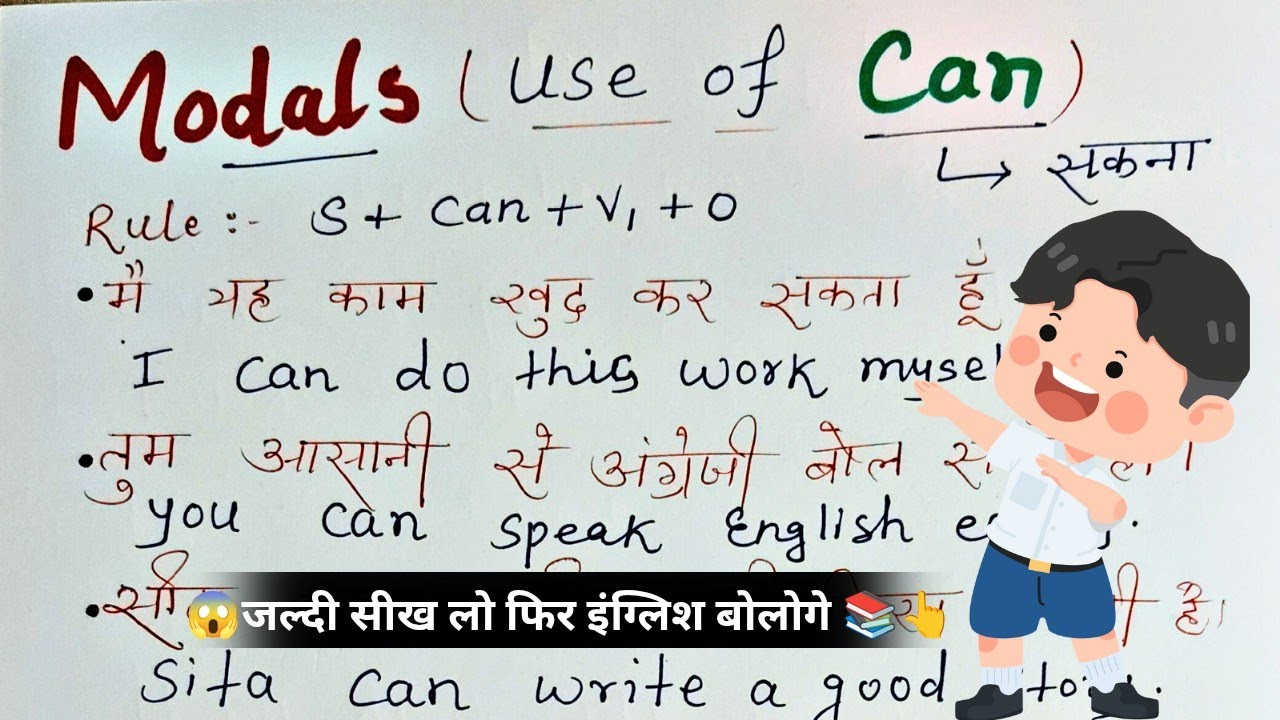 Modals (Use of Can)
↳ सकना
Rule :- S + Can + V₁ + O
• मै यह काम खुद कर सकता हूँ
I can do this work
• तुम आसानी से अंग्रेजी बोल
you can speak English
😱जल्दी सीख लो फिर इंग्लिश बोलोगे 📚👆
है।
Sita can write a good